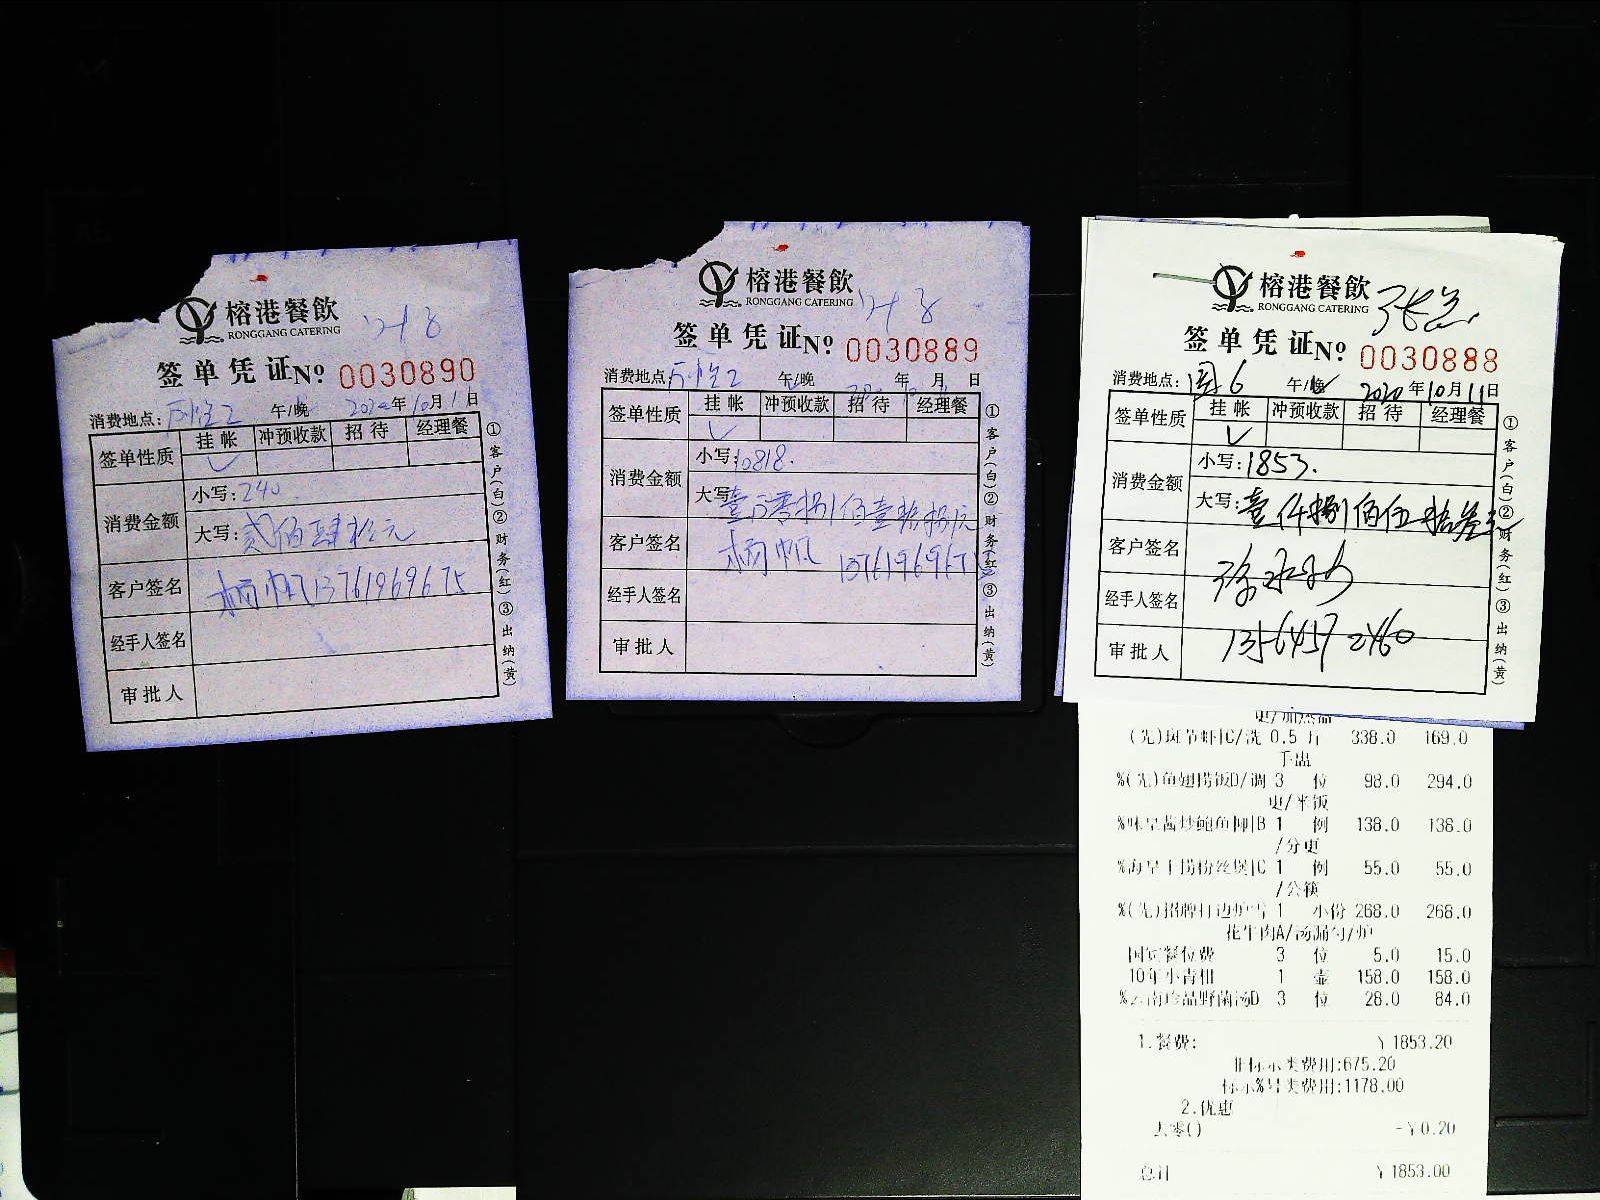 榕港餐飲
RONGGANG CATERING
签单凭证 No 0030890
消费地点: 午/晚 2020年10月11日
签单性质 挂帐 冲预收款 招待 经理餐
消费金额
小写:240.
大写:贰佰肆拾元
客户签名 杨帆13761969675
经手人签名
审批人
①客户(白)②财务(红)③出纳(黄)
榕港餐飲
RONGGANG CATERING
签单凭证 No 0030889
消费地点: 午/晚 年 月 日
签单性质 挂帐 冲预收款 招待 经理餐
消费金额
小写:10818.
大写:壹万零捌佰壹拾捌元
客户签名 杨帆 1376196967
经手人签名
审批人
①客户(白)②财务(红)③出纳(黄)
榕港餐飲
RONGGANG CATERING
签单凭证 No 0030888
消费地点:国6 午/晚 2020年10月11日
签单性质 挂帐 冲预收款 招待 经理餐
消费金额
小写:1853.
大写:壹仟捌佰伍拾叁元
客户签名
经手人签名
审批人 13564572460
①客户(白)②财务(红)③出纳(黄)
(先)斑节虾|C/洗 0.5 斤 338.0 169.0
手出
%(先)鱼翅捞饭D/调 3 位 98.0 294.0
更/米饭
%味皇酱炒鲍鱼柳|B 1 例 138.0 138.0
/分更
%海皇干捞粉丝煲|C 1 例 55.0 55.0
/公筷
%(先)招牌打边炉雪 1 小份 268.0 268.0
花牛肉A/汤漏勺/炉
国宾餐位费 3 位 5.0 15.0
10年小青柑 1 壶 158.0 158.0
%云南珍品野菌汤D 3 位 28.0 84.0
1.餐费: ¥1853.20
非标示类费用:675.20
标示%号类费用:1178.00
2.优惠
去零() -¥0.20
总计 ¥1853.00